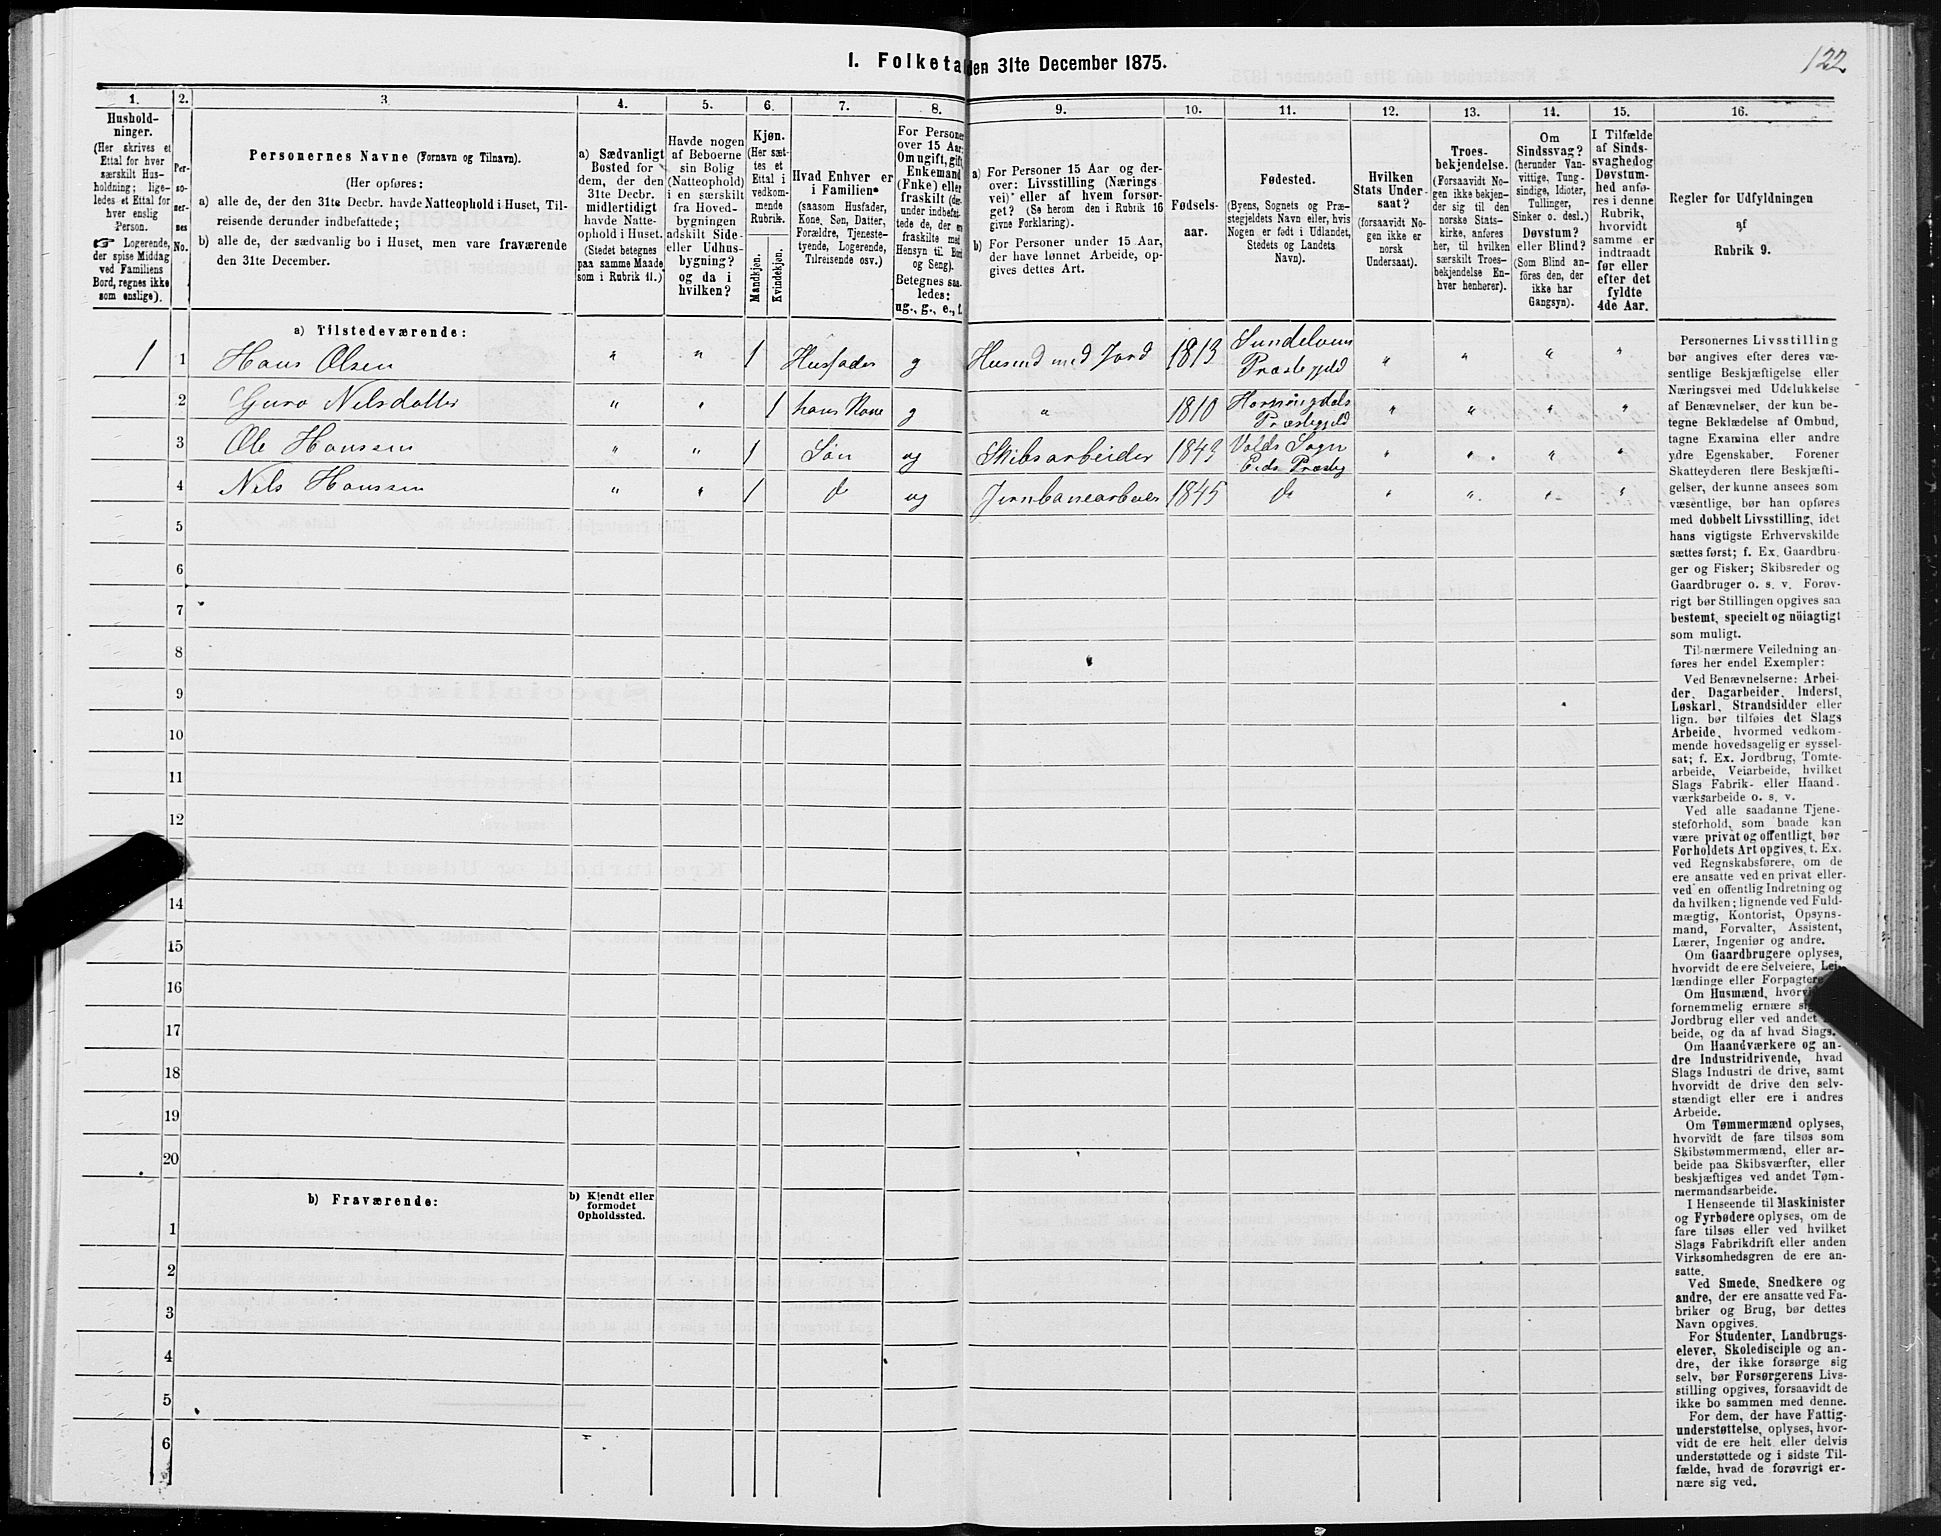 122
1. Folketa den 31te December 1875.
1.
2.
3.
4.
5.
6.
7.
8.
9.
10.
11.
12.
13.
14.
15.
16.
Hushold-
ninger.
(Her skrives et
Ettal for hver
særskilt Hus-
holdning; lige-
ledes et Ettal for
hver enslig
Person.
☞ Logerende,
der spise Middag
ved Familiens
Bord, regnes ikke
som enslige).
Per-
so-
ner-
nes
No.
Personernes Navne (Fornavn og Tilnavn).
(Her opføres:
a) alle de, der den 31te Decbr. havde Natteophold i Huset, Til-
reisende derunder indbefattede;
b) alle de, der sædvanlig bo i Huset, men vare fraværende
den 31te December.
a) Sædvanligt
Bosted for
dem, der den
31te Decbr.
midlertidigt
havde Natte-
ophold i Huset.
(Stedet betegnes
paa samme Maade
som i Rubrik 11.)
Havde nogen
af Beboerne
sin Bolig
(Natteophold)
i en særskilt
fra Hoved-
bygningen
adskilt Side-
eller Udhus-
bygning?
og da i
hvilken?
Kjøn.
(Her sæt-
tes et
Ettal i
vedkom-
mende
Rubrik.
Mandkjøn.
Kvindekjøn.
Hvad Enhver er
i Familien
(saasom Husfader,
Kone, Søn, Datter,
Forældre, Tjeneste-
tyende, Logerende,
Tilreisende osv.)
For Personer
over 15 Aar:
Om ugift, gift,
Enkemand
(Enke) eller
fraskilt (der-
under indbefat-
tede de, der er
fraskilte med
Hensyn til Bord
og Seng).
Betegnes saa-
ledes:
ug., g., e., f.
a) For Personer 15 Aar og der-
over: Livsstilling (Nærings
vei) eller af hvem forsør-
get? (Se herom den i Rubrik 16
givne Forklaring);
b) For Personer under 15 Aar,
der have lønnet Arbeide, op-
gives dettes Art.
Fødsels-
aar.
Fødested.
(Byens, Sognets og Præ-
stegjeldets Navn eller, hvis
Nogen er født i Udlandet,
Stedets og Landets
Navn).
Hvilken
Stats Under-
saat?
(forsaavidt No-
gen ikke er
norsk
Undersaat).
Troes-
bekjendelse.
(Forsaavidt No-
gen ikke bekjen-
der sig til den
norske Stats-
kirke, anføres
her, til hvilken
særskilt Troes-
bekjendelse En-
hver henhører).
Om
Sindssvag?
(herunder Van-
vittige, Tung-
sindige, Idioter,
Tullinger,
Sinker o. desl.)
Døvstum?
eller Blind?
(Som Blind an-
føres den, der
ikke har
Gangsyn).
I Tilfælde
af Sinds-
svaghed og
Døvstum-
hed anfø-
res i denne
Rubrik,
hvorvidt
samme er
indtraadt
før eller
efter det
fyldte
4de Aar.
Regler for Udfyldningen
af
Rubrik 9.
a) Tilstedeværende:
1 1 Hans Olsen " " 1 Husfader g Husmd med Jord 1813 Sundelvens Præstegjeld " " " "
2 Guro Nilsdatter " " 1 hans Kone g " 1810 Horningdals Præstegjeld " " " "
3 Ole Hanssen " " 1 Søn ug Skibsarbeider 1843 Valds Sogn Eids Præstg " " " "
4 Nils Hanssen " " 1 do ug Jernbanearbeider 1845 do " " " "
5
6
7
8
9
10
11
12
14
15
16
17
18
19
20
b) Fraværende:
b) Kjendt eller
formodet
Opholdssted.
1
2
3
4
5
6
Personernes Livsstilling
bør angives efter deres væ-
sentlige Beskjæftigelse eller
Næringsvei med Udelukkelse
af Benævnelser, der kun be-
tegne Beklædelse af Ombud,
tagne Examina eller andre
ydre Egenskaber. Forener
Skatteyderen flere Beskjæfti-
gelser, der kunne ansees som
væsentlige, bør han opføres
med dobbelt Livsstilling, idet
hans vigtigste Erhvervskilde
sættes først; f. Ex. Gaardbru-
ger og Fisker; Skibsreder og
Gaardbruger o. s. v. Forøv-
rigt bør Stillingen opgives saa
bestemt, specielt og nöiagtigt
som muligt.
Til nærmere Veiledning an-
føres her endel Exempler:
Ved Benævnelserne: Arbei-
der, Dagarbeider, Inderst,
Løskarl, Strandsidder eller
lign. bør tilføies det Slags
Arbeide, hvormed vedkom-
mende hovedsagelig er syssel-
sat; f. Ex. Jordbrug, Tomte-
arbeide, Veiarbeide, hvilket
Slags Fabrik- eller Haand-
værksarbeide o. s. v.
Ved alle saadanne Tjene-
steforhold, som baade kan
være privat og offentligt, bør
Forholdets Art opgives, t. Ex.
ved Regnskabsførere, om de
ere ansatte ved en privat eller
ved en offentlig Indretning og
da hvilken; lignende ved Fuld-
mægtig, Kontorist, Opsyns-
mand, Forvalter, Assistent,
Lærer, Ingeniør og andre.
Om Gaardbrugere oplyses,
hvorvidt de ere Selveiere, Lei-
lændinge eller Forpagtere
Om Husmænd,
fornemmelig ernære
Jordbrug eller ved andet
beide, og da af hvad Slags.
Om Haandværkere og an-
dre Industridrivende, hvad
Slags Industri de drive, samt
hvorvidt de drive den selv-
stændigt eller ere i andres
Arbeide.
Om Tømmermænd oplyses,
hvorvidt de fare tilsøs som
Skibstømmermænd, eller ar-
beide paa Skibsværfter, eller
beskjæftiges ved andet Tøm-
mermandsarbeide.
I Henseende til Maskinister
og Fyrbødere oplyses, om de
fare tilsøs eller ved hvilket
Slags Fabrikdrift eller anden
Virksomhedsgren de ere an-
satte.
Ved Smede, Snedkere og
andre, der ere ansatte ved Fa-
briker og Brug, bør dettes
Navn opgives.
For Studenter, Landbrugs-
elever, Skoledisciple og an-
dre, der ikke forsørge sig
selv, bør Forsørgerens Livs-
stilling opgives, forsaavidt de
ikke bo sammen med denne.
For dem, der have Fattig-
understøttelse, oplyses, hvor-
vidt de ere helt eller delvis
understøttede og i sidste Til-
fælde, hvad de forøvrigt er-
nære sig ved.